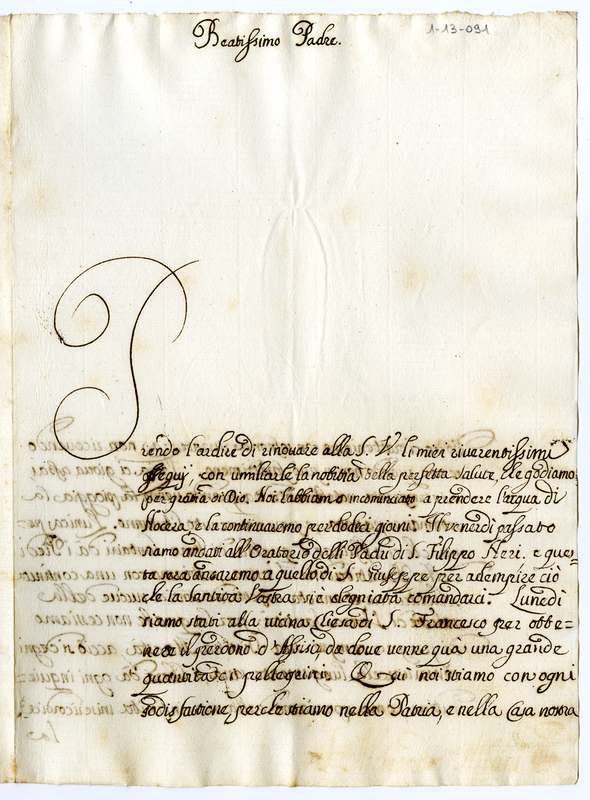 Beatissimo Padre.
1-13-091
Prendo l'ardire di rinovare alla S. V. li miei riverentissimi
ossequij, con umiliarle la notitia della perfetta salute, che godiamo
per gratia di Dio. Noi l'abbiamo incominciato a prendere l'acqua di
Nocera, e la continuaremo per dodeci giorni. Il venerdi passato
siamo andati all'Oratorio delli Padri di S. Filippo Neri. e que=
sta sera andaremo a quello di S. Giuseppe per adempire ciò
che la Santità Vostra si è degniata comandarci. Lunedì
siamo stati alla vicina Chiesa di S. Francesco per otte=
nere il perdono d'Assisi da dove venne quà una grande
quantità di pellegrini. Quì noi stiamo con ogni
sodisfattione, perche stiamo nella Patria, e nella Casa nostra